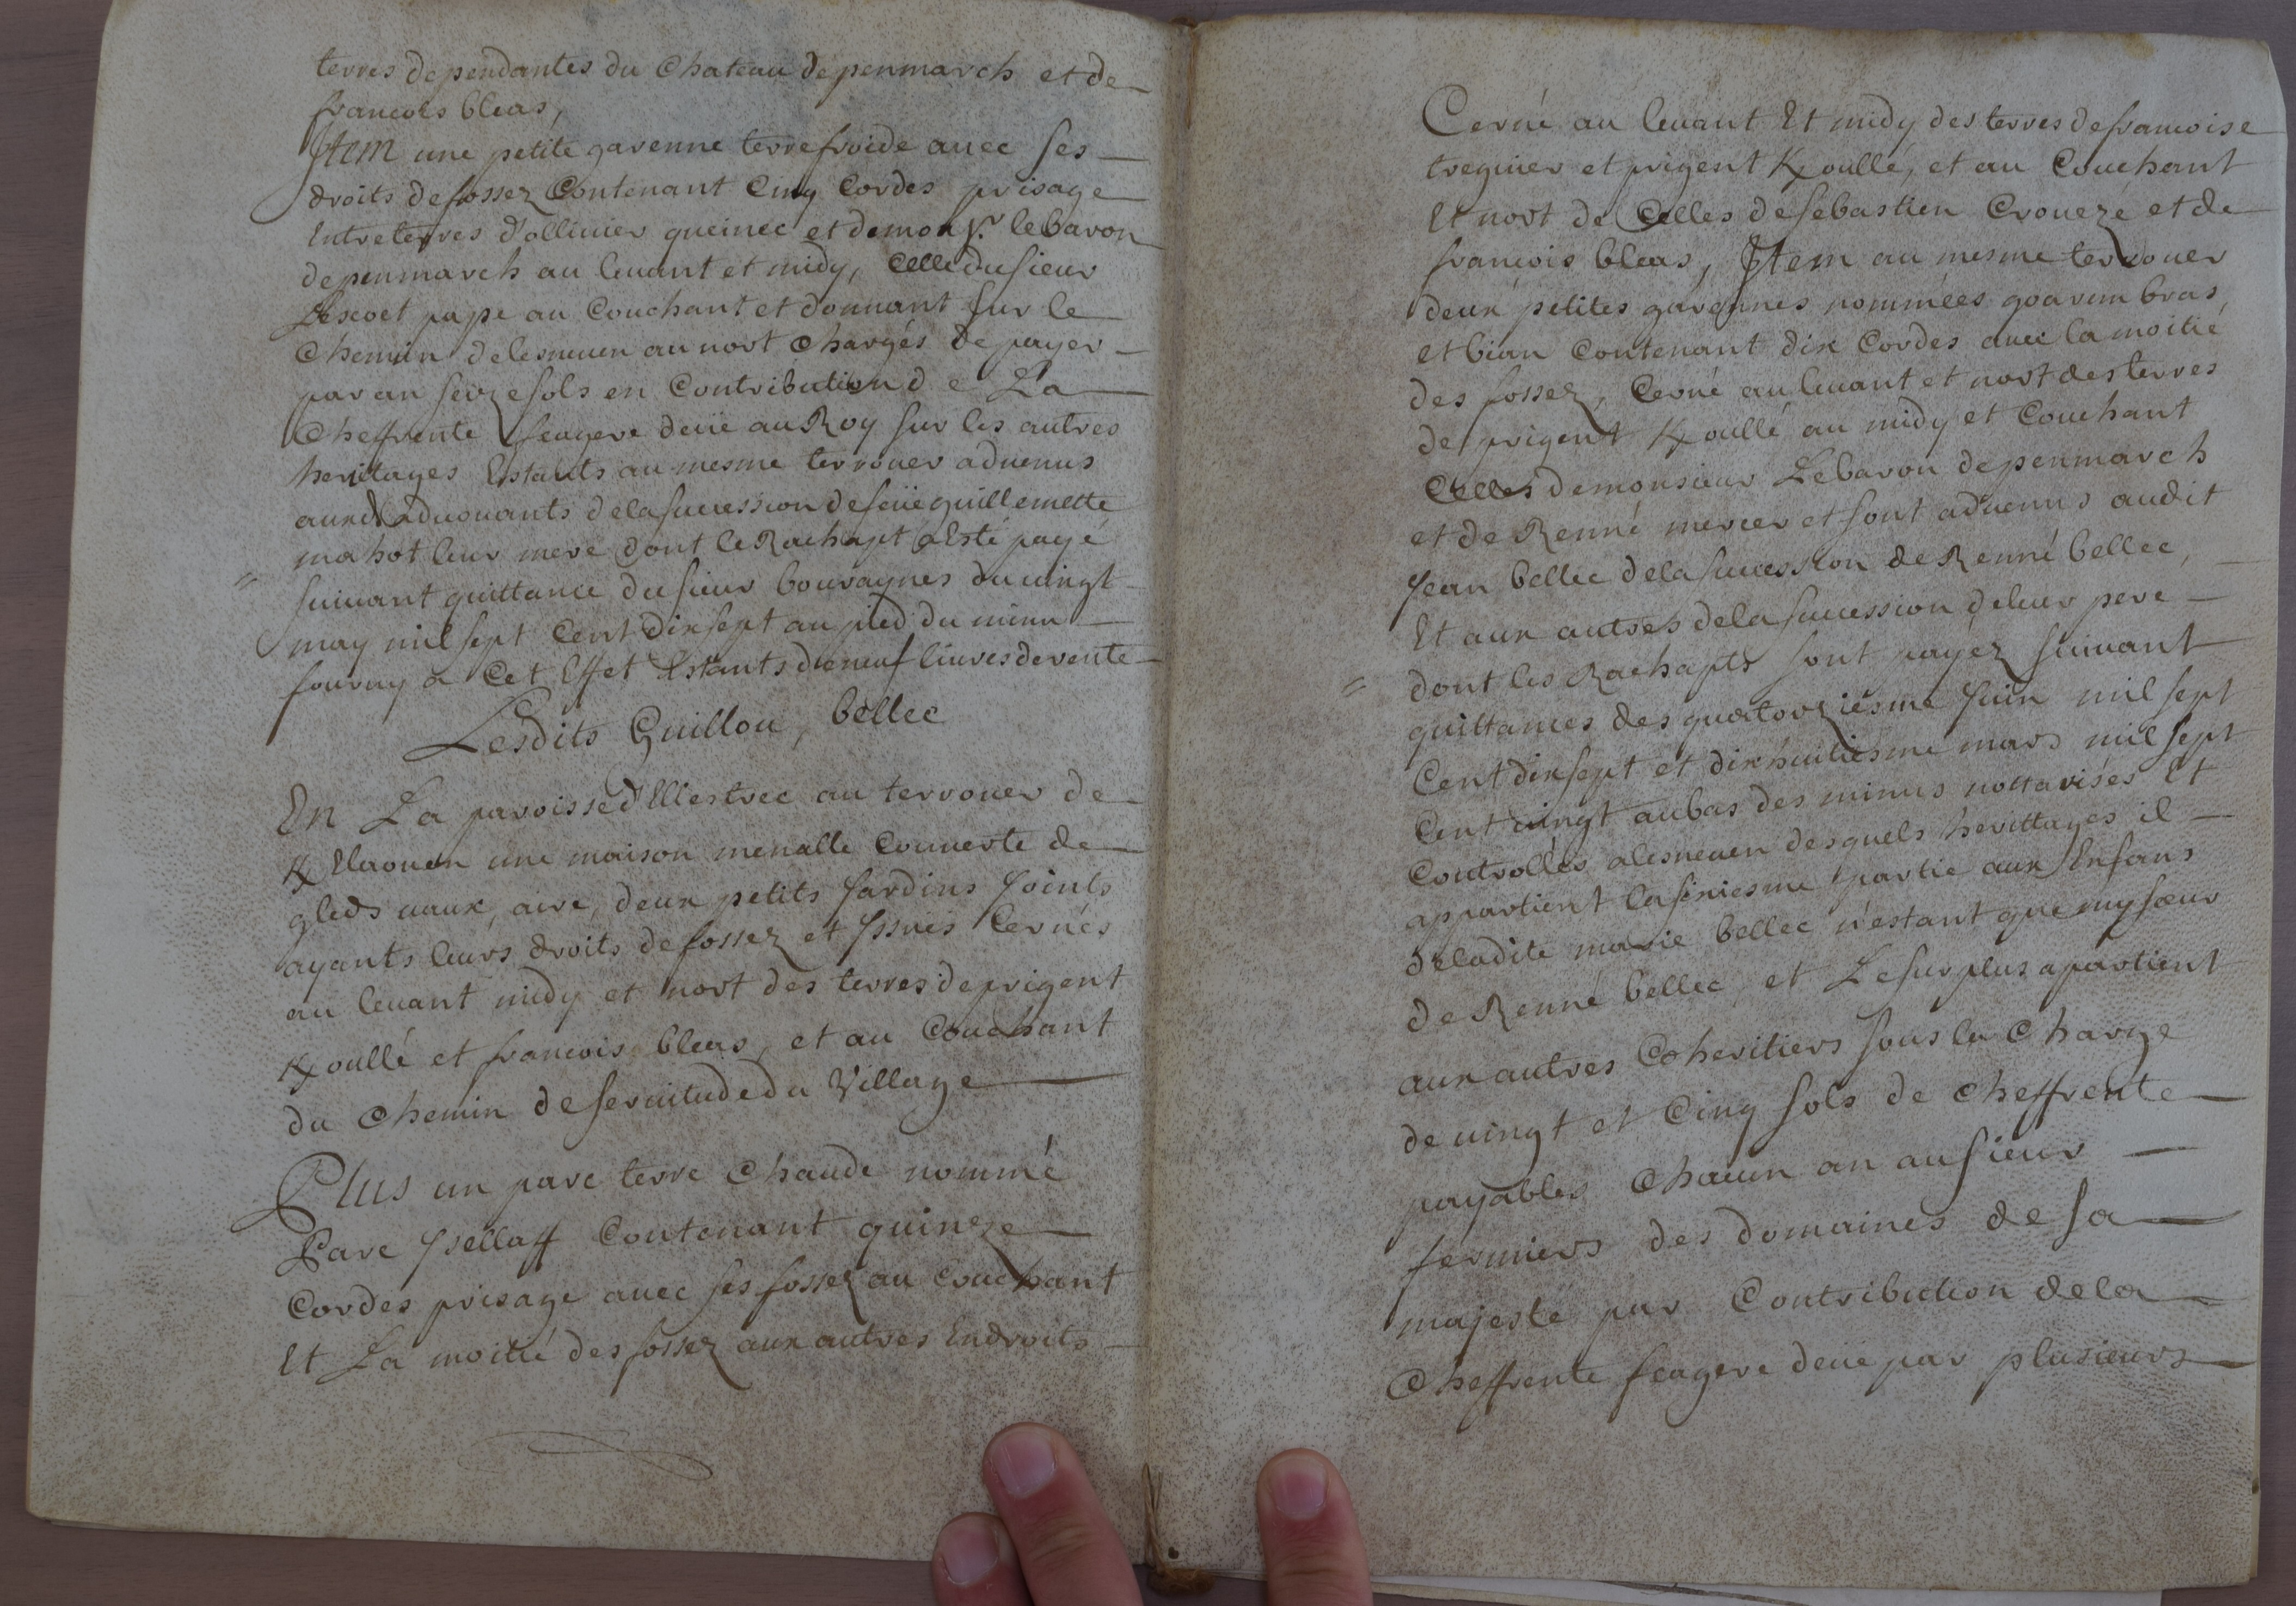 terres dependantes du Chateau de penmarch et de
francois bleas,
Item une petite garenne terre froide auec ses
droits de fossez Contenant Cinq Cordes prisage
Entre terres d'ollivier queinec et de monsr. le baron
de penmarch au leuant et midy, Celle du sieur
Lescoet pape au Couchant et donnant sur le
Chemin de lesneuen au nort Chargés de payer
par an seize sols en Contribution de La
Cheffrente feagere deüe au Roy sur les autres
heritages Estants au mesme terrouer aduenus
auxd aduouants de la succession de feüe guillemette
mahot leur mere dont le Rachapt a Esté payé
suiuant quittance du sieur bouragnes du uingt
may mil sept Cent dix sept au pied du minu
fourny a Cet Effet Estants de neuf liures de rente
Lesdits Guillou, bellec
En La paroisse d'Ellestrec au terrouer de
Kellaouen une maison menalle Couuerte de
gleds uaux, aire, deux petits Jardins Joints
ayants leurs droits de fossez et Issues Cernés
au leuant midy et nort des terres de prigent
Koullé et francois bleas, et au Couchant
du Chemin de seruitude du Village
Plus un parc terre Chaude nommé
Parc Jsellaff Contenant quinze
Cordes prisage auec ses fossez au Couchant
Et La moitié des fossez aux autres Endroits
Cerné au leuant Et midy des terres de francoise
treguier et prigent Koullé, et au Couchant
Et nort de Celles de sebastien Crouezé et de
francois bleas, Item au mesme terrouer
deux petites garennes nommées goarem bras,
et bian Contenant dix Cordes auec la moitié
des fossez, Cerné au leuant et nort des terres
de prigent Koullé au midy et Couchant
Celles de monsieur Le baron de penmarch
et de Renné mercer et sont aduenus audit
Jean bellec de la succession de Renné bellec,
Et aux autres de la succession de leur pere
dont les Rachapts sont payez suiuant
quittances des quatorziesme Juin mil sept
Cent dix sept et dix huitiesme mars mil sept
Cent uingt au bas des minus nottarisés Et
Controllés a lesneuen desquels herittages il
appartient la sixiesme partie aux Enfans
de ladite marie bellec n'estant que my sœur
de Renné bellec, et Le surplus apartient
aux autres Coheritiers sous la Charge
de uingt et Cinq sols de Cheffrente
payables Chacun an au sieur
fermiers des domaines de sa
majesté par Contribution de la
Cheffrente feagere deüe par plusieurs